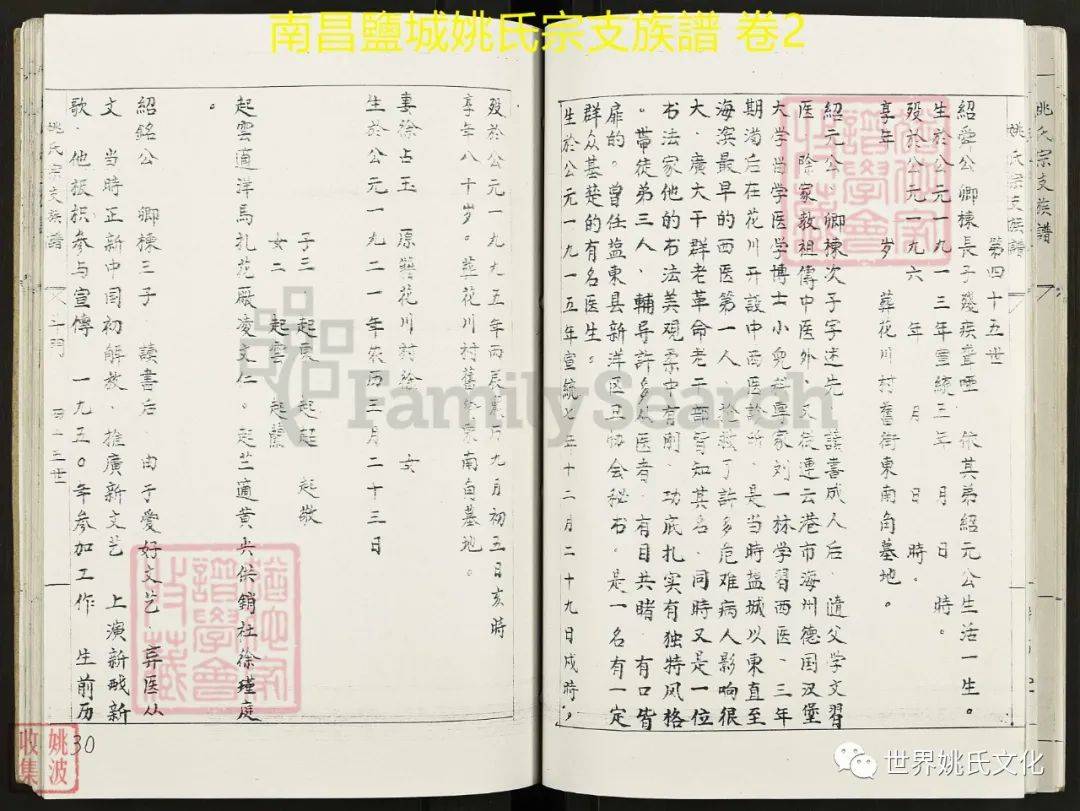 南昌鹽城姚氏宗支族譜 卷2
姚氏宗支族譜
姚氏宗支族譜
第四十五世
紹舜公 卿棟長子殘疾聾啞. 依其弟紹元公生活一生。
生於公元一九一三年宣統三年 月 日 時。
歿於公元一九六 年 月 日 時.
享年 歲 葬花川村舊街東南角墓地。
紹元公. 卿棟次子字述先. 讀書成人后. 遺父学文習
医. 除家教祖傳中医外. 又徒連云港市海州德国汉堡
大学尚学医学博士小兒科專家刘一林学習西医. 三年
期滿后在花川开設中西医診所. 是当時盐城以東直至
海滨最早的西医第一人. 抢救了許多危难病人影响很
大. 廣大干群老革命老干部皆知其名. 同時又是一位
书法家他的书法美观柔中有剛. 功底扎实有独特风格
。帶徒弟三人. 輔导許多从医者. 有目共睹. 有口皆
扉的。曾任盐東县新洋区卫协会秘书。是一名有一定
群众基楚的有名医生。
生於公元一九一五年宣統七年十二月二十九日戍時,
歿於公元一九九五年丙辰農历九月初五日亥時
享年八十岁。葬花川村舊後東南角墓地。
妻徐占玉 原籍花川村徐 女
生於公元一九二一年农历三月二十三日
子三 起展 起起 起敬
女二 起雲 起蘭
起雲適洋馬扎花厰凌文仁。起兰適黄尖供銷社徐瑾庭
。
紹銘公 卿棟三子. 讀書后. 由于爱好文艺. 弃医从
文. 当時正新中国初解放、推廣新文艺. 上演新戏新
歌. 他积极参与宣傳. 一九五0年参加工作. 生前历
姚氏宗支族譜
四十五世
30
姚波
收集
世界姚氏文化
FamilySearch